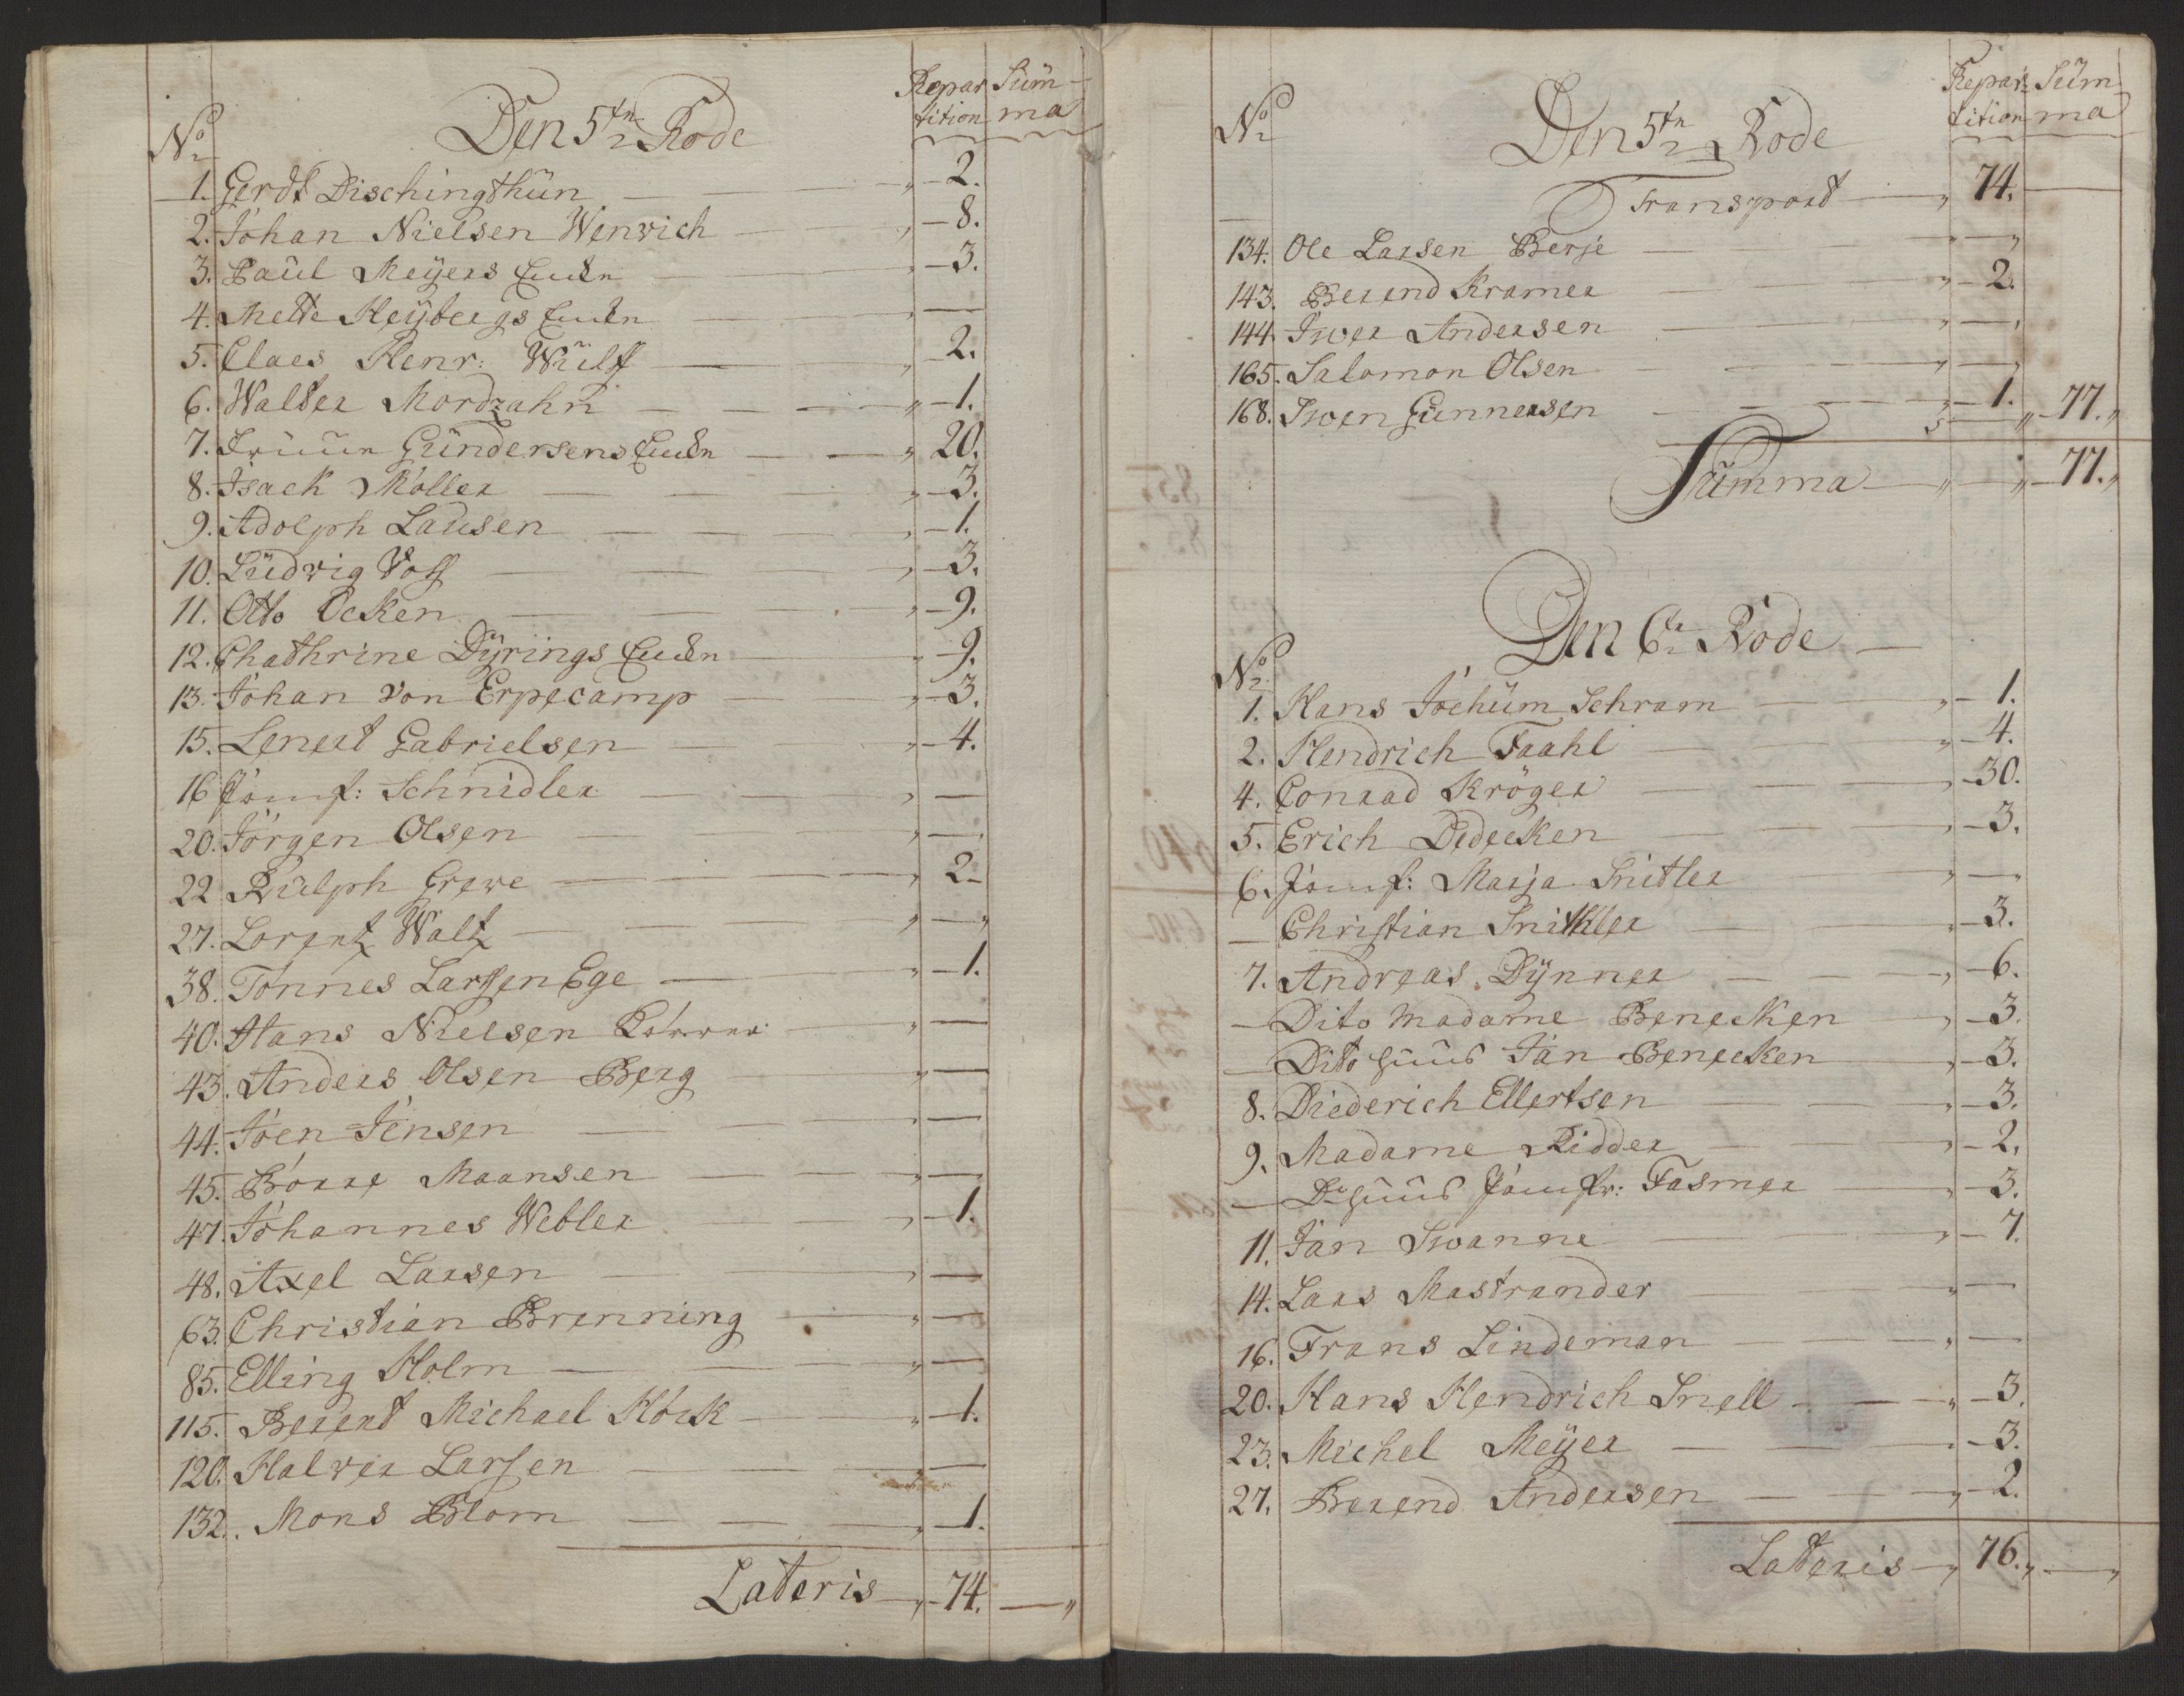 Repar Süm-
tition ma
No Den 5tn Rode
1. Gerdt Dischingthün — 2.
2. Johan Nielsen Wenrich — 8.
3. Paül Meÿers Enckn — 3.
4. Mette Heÿbergs Enckn —
5. Claes Henr: Wülff — 2.
6. Walter Mordzahn — 1.
7. Iwün Gündersens Enckn — 20.
8. Isack Möller — 3.
9. Adolph Lausen — 1.
10. Lüdvig Voss — 3.
11. Otto Ocken — 9.
12. Chathrine Dÿrings Enckn — 9.
13. Johan von Erpecamp — 3.
15. Lenert Gabrielsen — 4.
16 Jomf: Schnidler —
20. Jörgen Olsen —
22 Rülph Grewe — 2.
27. Lorentz Waltz —
38. Tönnes Larssen Ege — 1.
40. Hans Nielsen —
43. Anders Olsen Berg —
44. Joen Jensen —
45. Börre Maansen —
47. Johannes Webler — 1.
48. Axel Larsen —
63. Christian Brenning —
85. Elling Holm —
115. Berent Michael Köck — 1.
120. Halver Larssen —
132. Mons Blom — 1.
Lateris — 74. —
Repar Süm
tition ma
No Den 5tn Rode
Transport — 74. —
134. Ole Larsen Berje —
143. Berend Kramer — 2.
144. Iwer Andersen —
165. Salomon Olsen —
168. Swen Gunnersen — 1. 77.
Summa — 77.
Den 6te Rode
No
1. Hans Jochüm Schram — 1.
2. Hendrich Faahl — 4.
4. Conrad Kröger — 30.
5. Erich Dedecken — 3.
6. Jomf: Marja Snitler —
— Christian Snitler — 3.
7. Andreas Dÿnner — 6.
— Dito Madame Benecken — 3.
— Dito Huus Jan Benecken — 3.
8. Diederich Ellertsen — 3.
9. Madame Ridder — 2.
— Do Huus Jomfr: Fasmer — 3.
11. Jan Swanne — 7.
14. Lars Mastrander —
16. Frans Lindeman —
20. Hans Hendrich Snell — 3.
23. Michel Meÿer — 3.
27. Berend Andersen — 2.
Lateris — 76. —